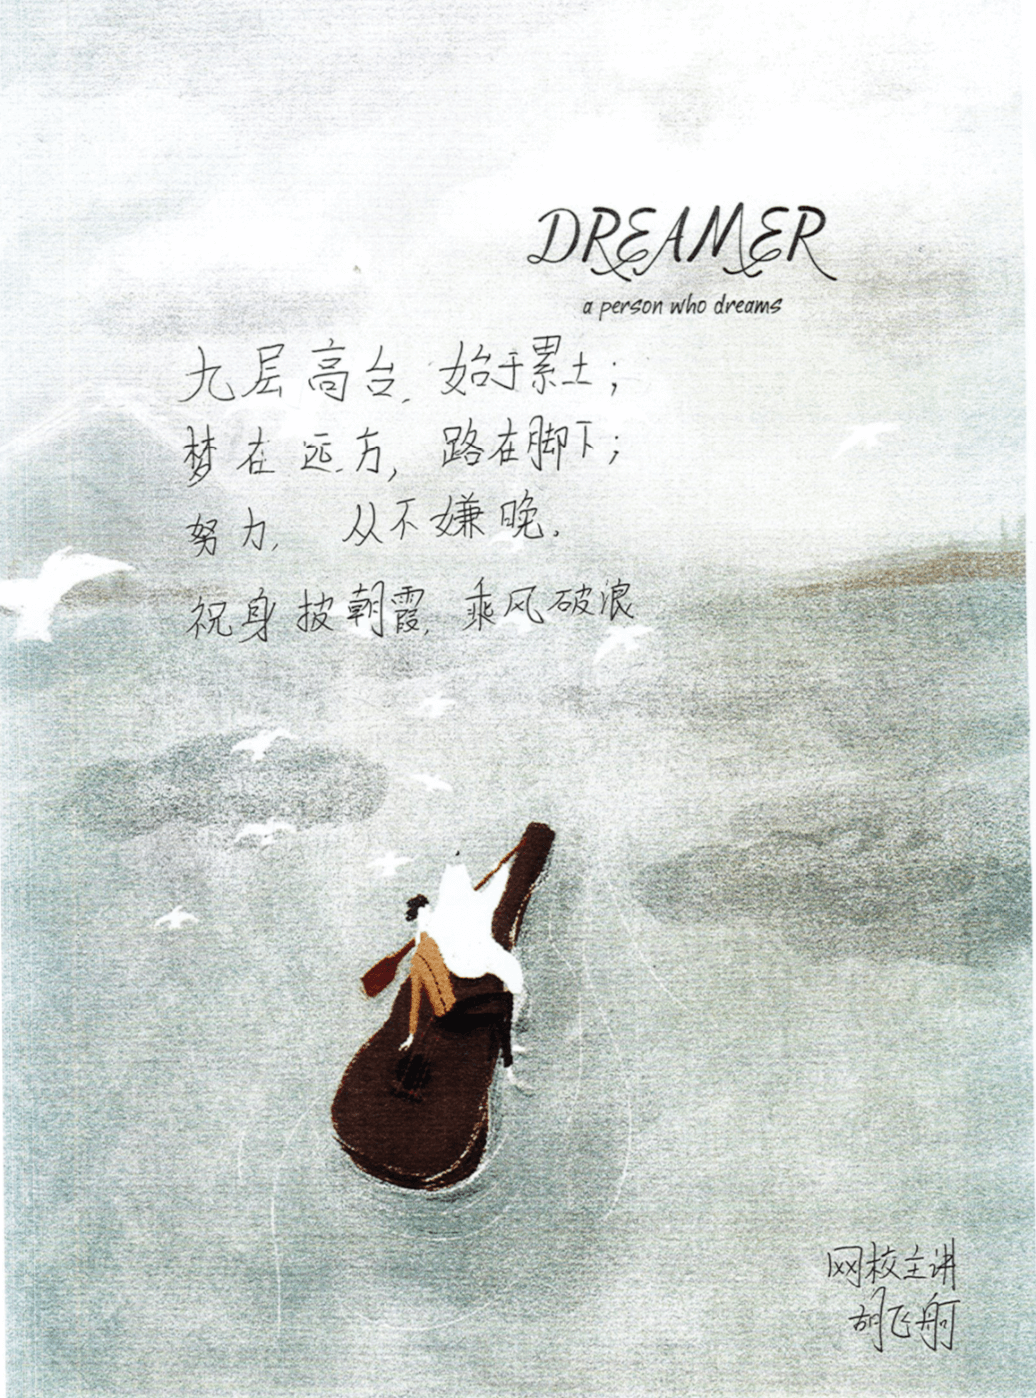 DREAMER
a person who dreams
九层高台，始于累土；
梦在远方，路在脚下；
努力，从不嫌晚。
祝身披朝霞，乘风破浪
网校主讲
胡飞舸